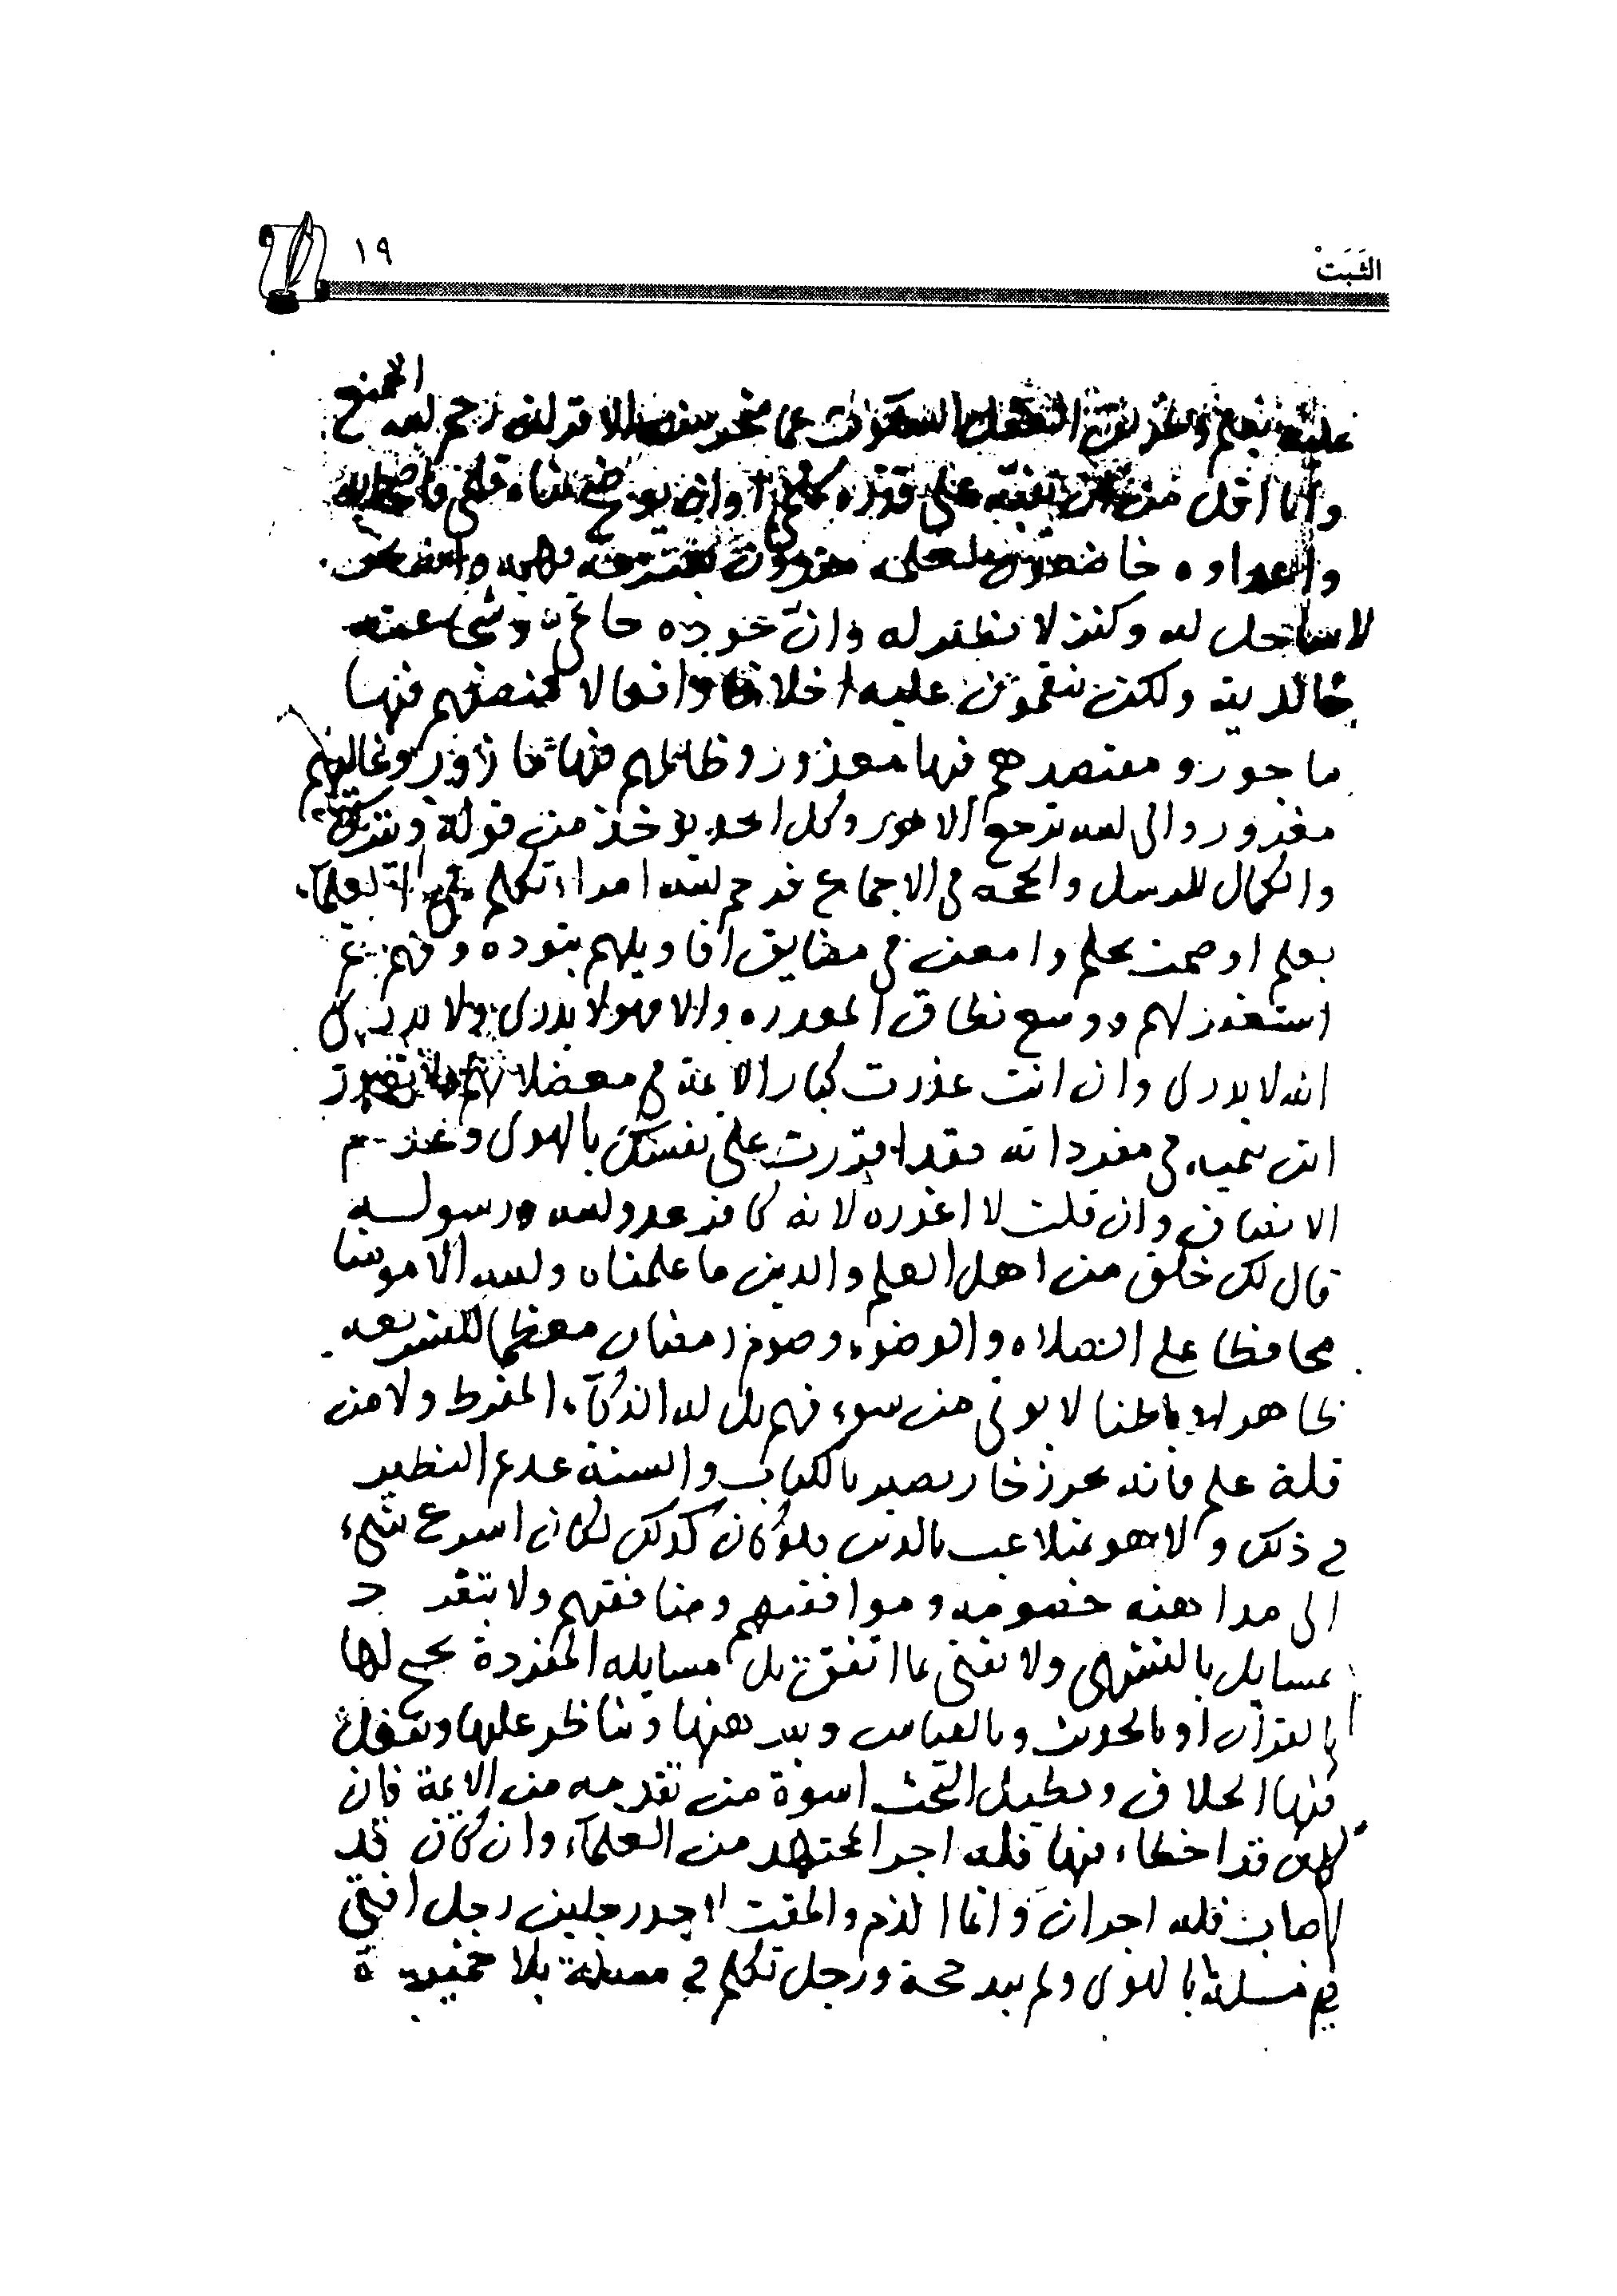 الثَبَتْ
١٩
الجميع
وانا اقل من ان ينبه على قدره كلمي او ان يوضح نباه قلمي فاصحابه
واعداوه خاضعون لعلمه مقرون بسرعة فهمه وانه بحر
لا ساحل له وكنز لا نظير له وان جوده حاتمي وشجاعته
خالدية ولكن ينقمون عليه اخلاقا وافعالا منصفهم فيها
ماجور ومقتصدهم فيها معذور وظالمهم فيها مازور وغاليهم
مغرور والى الله ترجع الامور وكل احد يؤخذ من قوله ويترك
والكمال للرسل والحجة في الاجماع فرحم الله امراء تكلم في العلماء
بعلم او صمت بحلم وامعن في مضايق اقاويلهم بتوده وفهم ثم
استغفر لهم ووسع نطاق المعذره والا فهو لا يدري ولا يدري
انه لا يدري وان انت عذرت كبار الايمة في معضلاتهم ولا تعذر
ابن تيميه في مفرداته فقد اقررت على نفسك بالهوى وعدم
الانصاف وان قلت لا اعذره لانه كافر عدو لله ورسوله
قال لك خلق من اهل العلم والدين ما علمناه والله الا مومنا
محافظا على الصلاه والوضوء وصوم رمضان معظما للشريعه
ظاهرا وباطنا لا يوتى من سوء فهم بل له الذكاء المفرط ولا من
قلة علم فانه بحر زخار بصير بالكتاب والسنة عديم النظير
في ذلك ولا هو بمتلاعب بالدين فلو كان كذلك لكان اسرع شيء
الى مداهنه خصومه وموافقتهم ومنافقتهم ولا يتفرد
بمسايل بالتشهي ولا يفتي بما اتفق بل مسايله المفردة يحتج لها
بالقران او بالحديث وبالقياس ويبرهنها ويناظر عليها وينقل
فيها الخلاف ويطيل البحث اسوة من تقدمه من الايمة فان
كان قد اخطاء فيها فله اجر المجتهد من العلماء وان كان قد
اصاب فله اجران وانما الذم والمقت لاحد رجلين رجل افتى
في مسلة بالهوى ولم يبد حجة ورجل تكلم في مسلة بلا خميرة